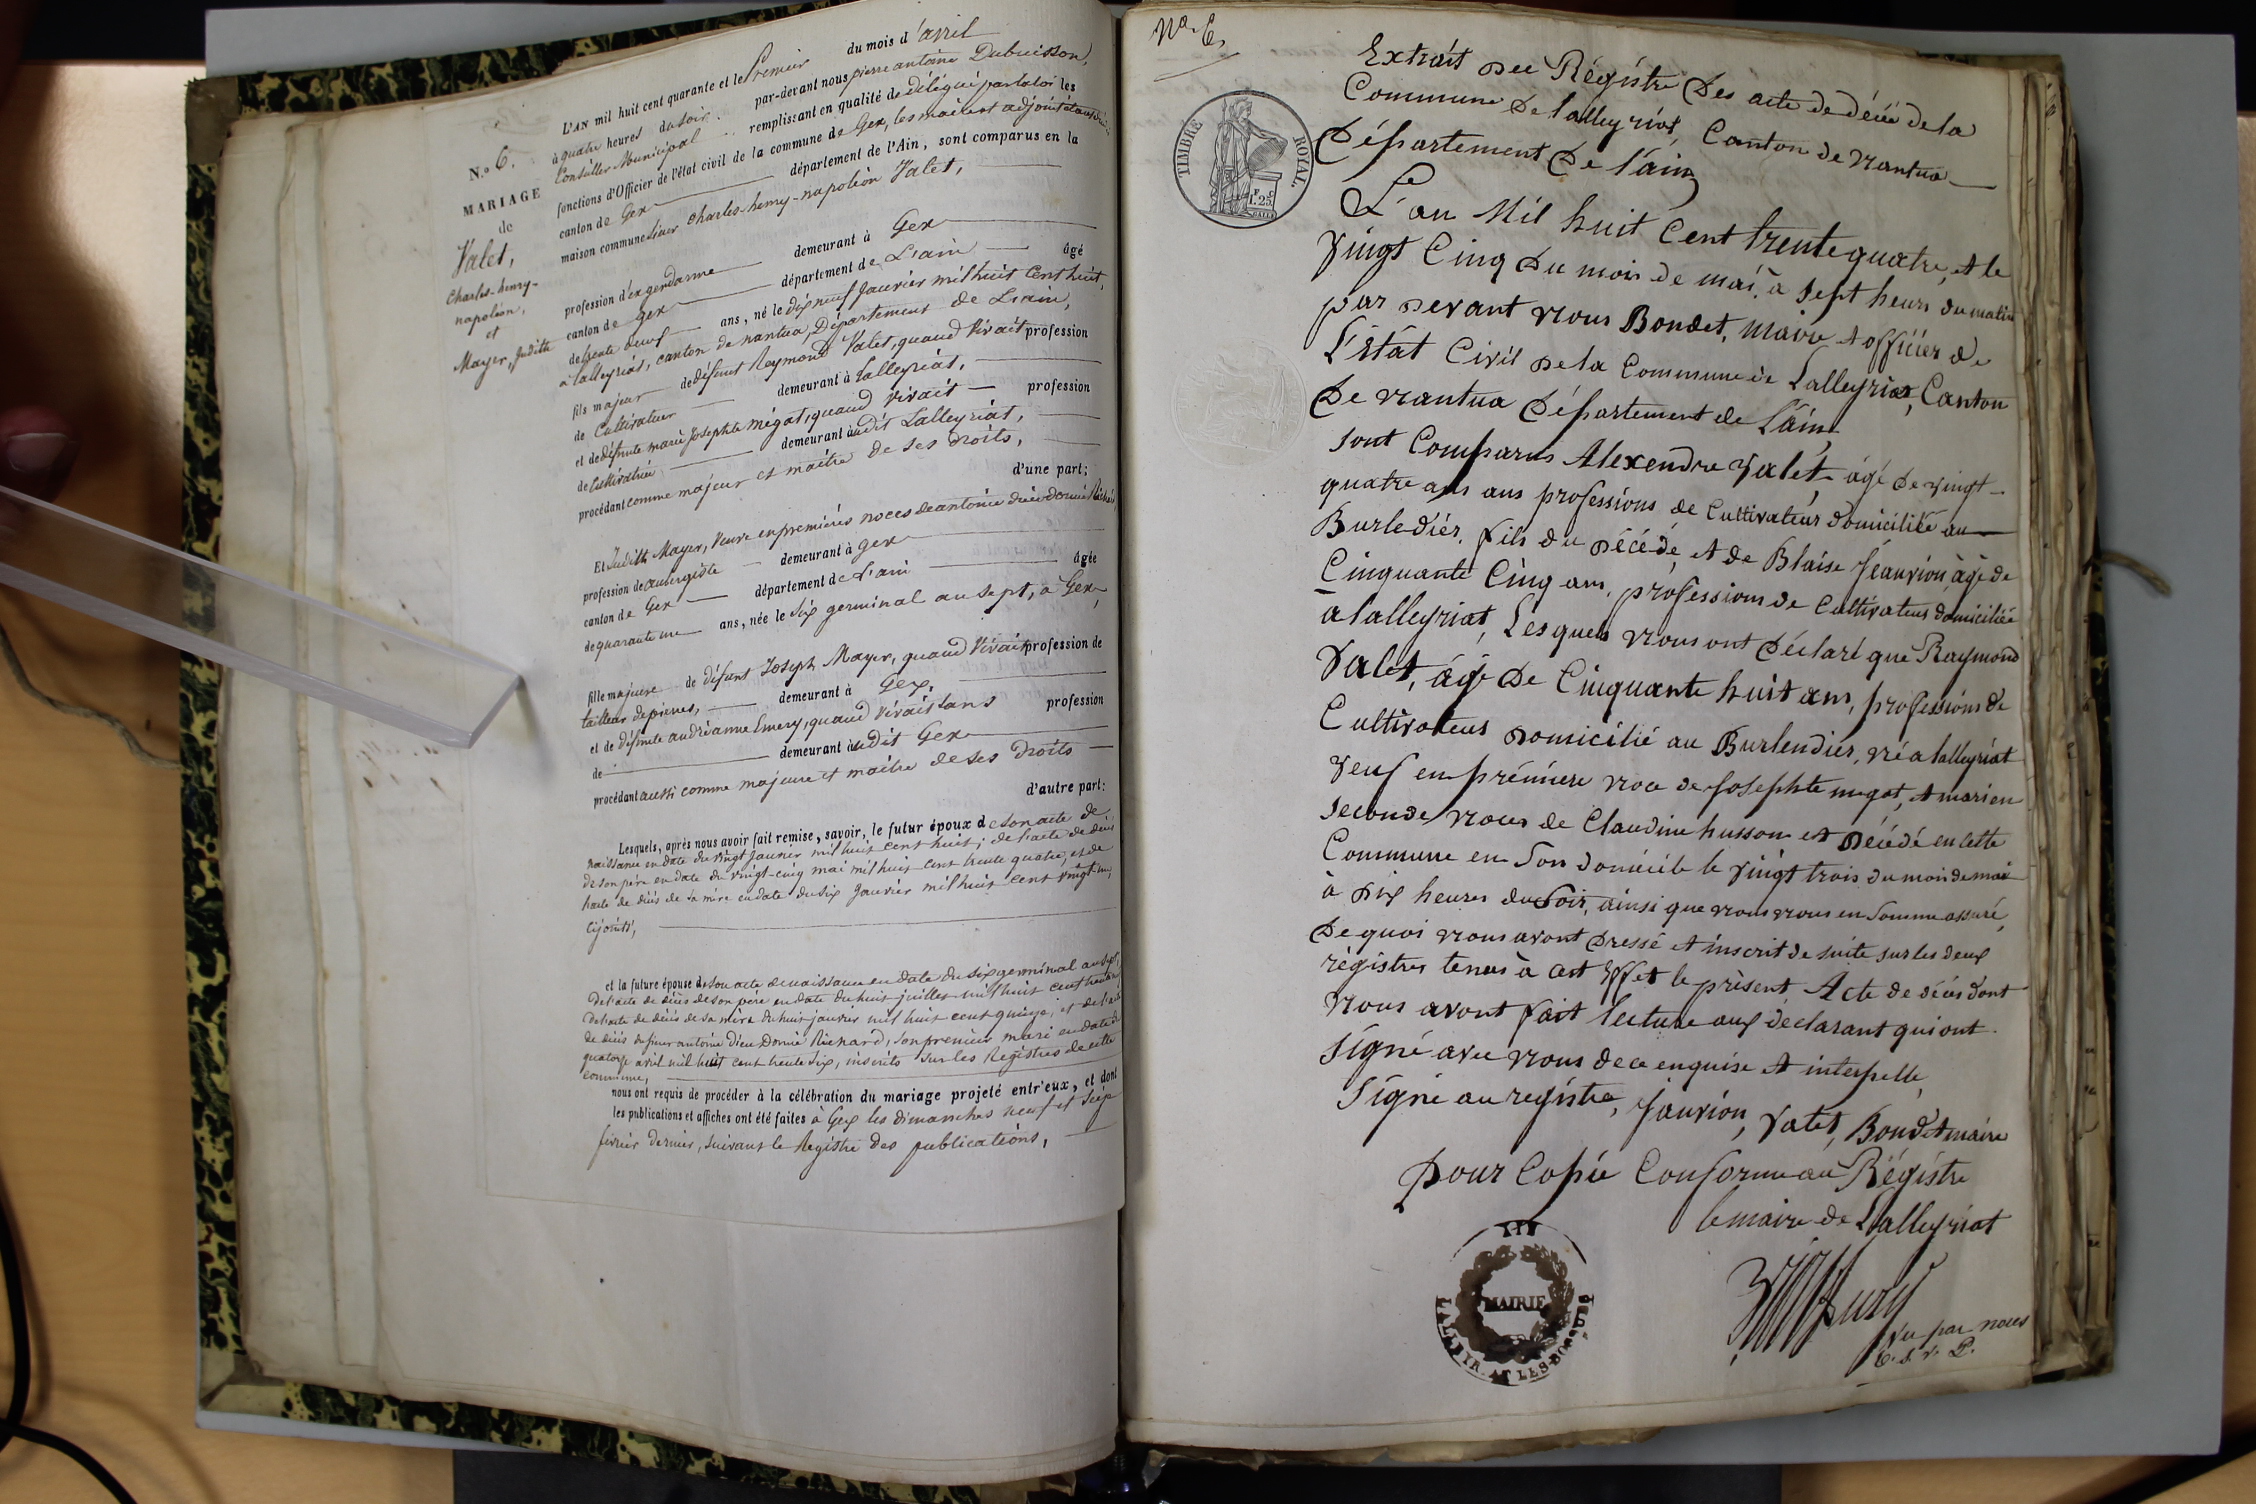 N.o 6.
MARIAGE
de
Valet,
Charles-henry-
napoléon,
et
Mayer, Judith
L'AN mil huit cent quarante et le Premier du mois d'avril
à quatre heures du soir. par-devant nous pierre antoine Dubuisson,
Conseiller Municipal remplissant en qualité de délégué par la loi les
fonctions d'Officier de l'état civil de la commune de Gex, les maire et adjoint
canton de Gex département de l'Ain, sont comparus en la
maison commune Sieur Charles-henry-napoléon Valet,
profession d'ex gendarme demeurant à Gex
canton de Gex département de L'ain âgé
de trente deux ans, né le dix neuf Janvier mil huit Cent huit,
à lalleyriat, canton de nantua, Département de L'ain,
fils majeur de défunt Reymond Valet, quand Vivait profession
de Cultivateur demeurant à Lalleyriat,
et de défunte marie Josephte mégat, quand vivait profession
de Cultivatrice demeurant audit Lalleyriat,
procédant comme majeur et maître de ses droits,
d'une part;
Et Judith Mayer, Veuve en premières noces de antoine dieu donné Richard,
profession de aubergiste demeurant à Gex
canton de Gex département de L'ain âgée
de quarante un ans, née le Six germinal an sept, à Gex,
fille majeure de défunt Joseph Mayer, quand Vivait profession de
tailleur de pierres, demeurant à Gex,
et de défunte andrianne Emery, quand Vivait sans profession
de demeurant audit Gex
procédant aussi comme majeure et maître de ses Droits
d'autre part:
Lesquels, après nous avoir fait remise, savoir, le futur époux de son acte de
naissance en date du vingt Janvier mil huit cent huit; de l'acte de décès
de son père en date du vingt-cinq mai mil huit cent trente quatre, et de
l'acte de décès de sa mère en date du six Janvier mil huit cent vingt-un,
Cijoints,
et la future épouse de son acte de naissance en date du six germinal an sept,
de l'acte de décès de son père en date du huit juillet mil huit cent trente
de l'acte de décès de sa mère du huit janvier mil huit cent quinze, et de l'acte
de décès du sieur antoine Dieu Donné Richard, son premier mari en date du
quatorze avril mil huit cent trente six, inscrits sur les Registres de cette
commune,
nous ont requis de procéder à la célébration du mariage projeté entr'eux, et dont
les publications et affiches ont été faites à Gex les dimanches neuf et seize
février dernier, suivant le Registre des publications,
No. 6,
TIMBRE ROYAL.
F. C
1.25.
Extrait du Régistre Des acte de décès de la
Commune De lalleyriat, Canton de Nantua
Département De l'ain
L'an Mil huit Cent trente quatre, et le
vingt Cinq Du mois de mai, à sept heurs du matin
par Devant nous Bondet, maire et officier de
L'état Civil De la Commune de Lalleyriat, Canton
De Nantua Département de L'ain,
sont Comparus Alexendre Valét âgé De vingt
quatre ans ans professions de Cultivateur domicilié au
Burledier, fils du Décédé, et de Blaise Jeanvion, âgé de
Cinquante Cinq ans, professions de Cultivateur domicilié
a lalleyriat, Lesquels nous ont Déclaré que Raymond
Valet, âgé De Cinquante huit ans, professions de
Cultivateur Domicilié au Burlendier, né a lalleyriat
veuf en prémiere noce de Josephte megat, et mari en
seconde noces de Claudine husson est Décédé en cette
Commune en Son domicile le vingt trois du moi de mai
à Dix heures du Soir, ainsi que nous nous en somme assuré,
De quoi nous avont Dressé et inscrit de suite sur les deux
régistres tenus à cet Effet le présent Acte de décès dont
nous avont fait lecture aux déclarant qui ont
signé avec nous de ce enquise et interpellé,
Signé au registre, Jauvion, Valet, Bondet maire
pour Copie Conforme au Régistre
le maire de Lalleyriat
Vu par nous
AIN
MAIRIE